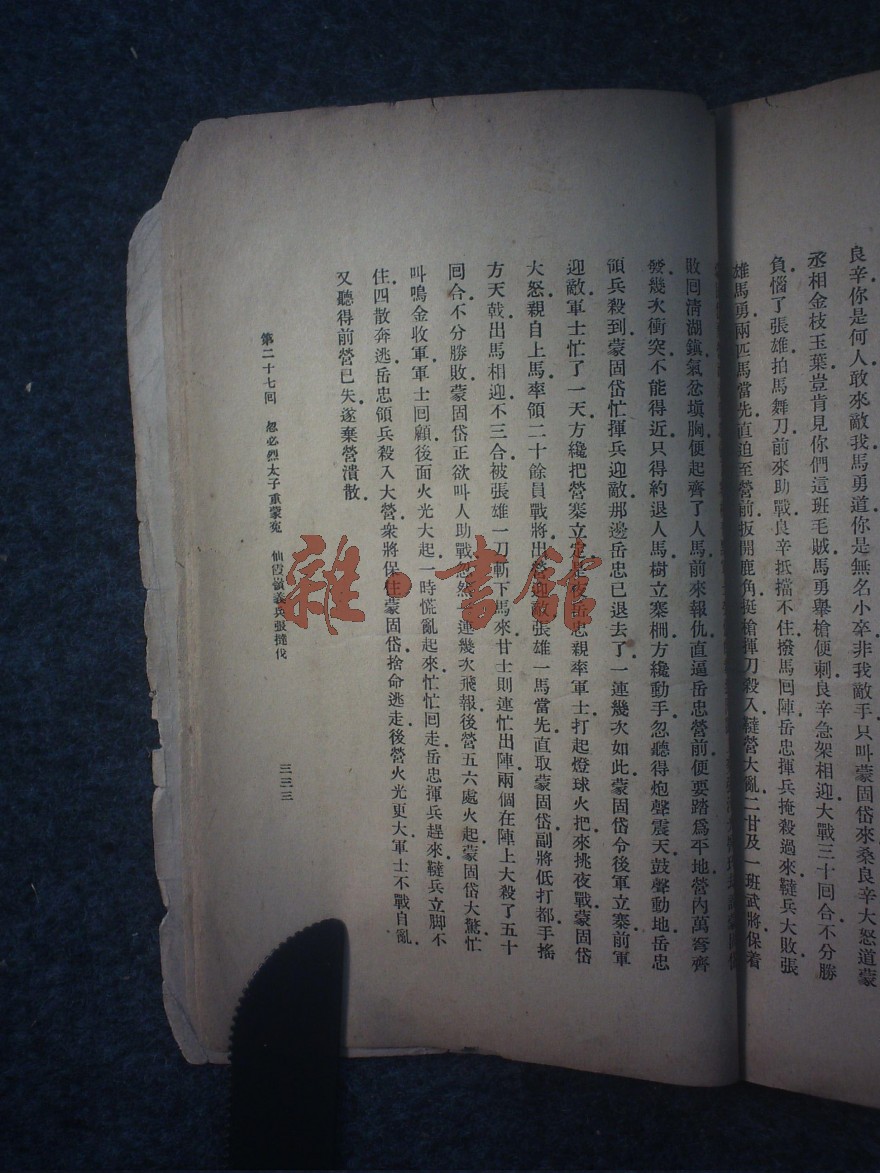 良辛你是何人敢來敵我馬勇道你是無名小卒非我敵手只叫蒙固岱來桑良辛大怒道蒙
丞相金枝玉葉豈肯見你們這班毛賊馬勇舉槍便刺良辛急架相迎大戰三十回合不分勝
負惱了張雄拍馬舞刀前來助戰良辛抵擋不住撥馬回陣岳忠揮兵掩殺過來韃兵大敗張
雄馬勇兩匹馬當先直迫至營前扳開鹿角挺槍揮刀殺入韃營大亂二甘及一班武將保着
敗回淸湖鎭氣忿塡胸便起齊了人馬前來報仇直逼岳忠營前便要踏爲平地營內萬弩齊
發幾次衝突不能得近只得約退人馬樹立寨柵方纔動手忽聽得炮聲震天鼓聲動地岳忠
領兵殺到蒙固岱忙揮兵迎敵那邊岳忠已退去了一連幾次如此蒙固岱令後軍立寨前軍
迎敵軍士忙了一天方纔把營寨立定是夜岳忠親率軍士打起燈球火把來挑夜戰蒙固岱
大怒親自上馬率領二十餘員戰將出營迎敵張雄一馬當先直取蒙固岱副將低打都手搖
方天戟出馬相迎不三合被張雄一刀斬下馬來甘士則連忙出陣兩個在陣上大殺了五十
回合不分勝敗蒙固岱正欲叫人助戰忽然一連幾次飛報後營五六處火起蒙固岱大驚忙
叫鳴金收軍軍士回顧後面火光大起一時慌亂起來忙忙回走岳忠揮兵趕來韃兵立脚不
住四散奔逃岳忠領兵殺入大營衆將保住蒙固岱捨命逃走後營火光更大軍士不戰自亂
又聽得前營已失遂棄營潰散
第二十七回 忽必烈太子重蒙寃 仙霞嶺義兵張撻伐
三三三
雜·書館